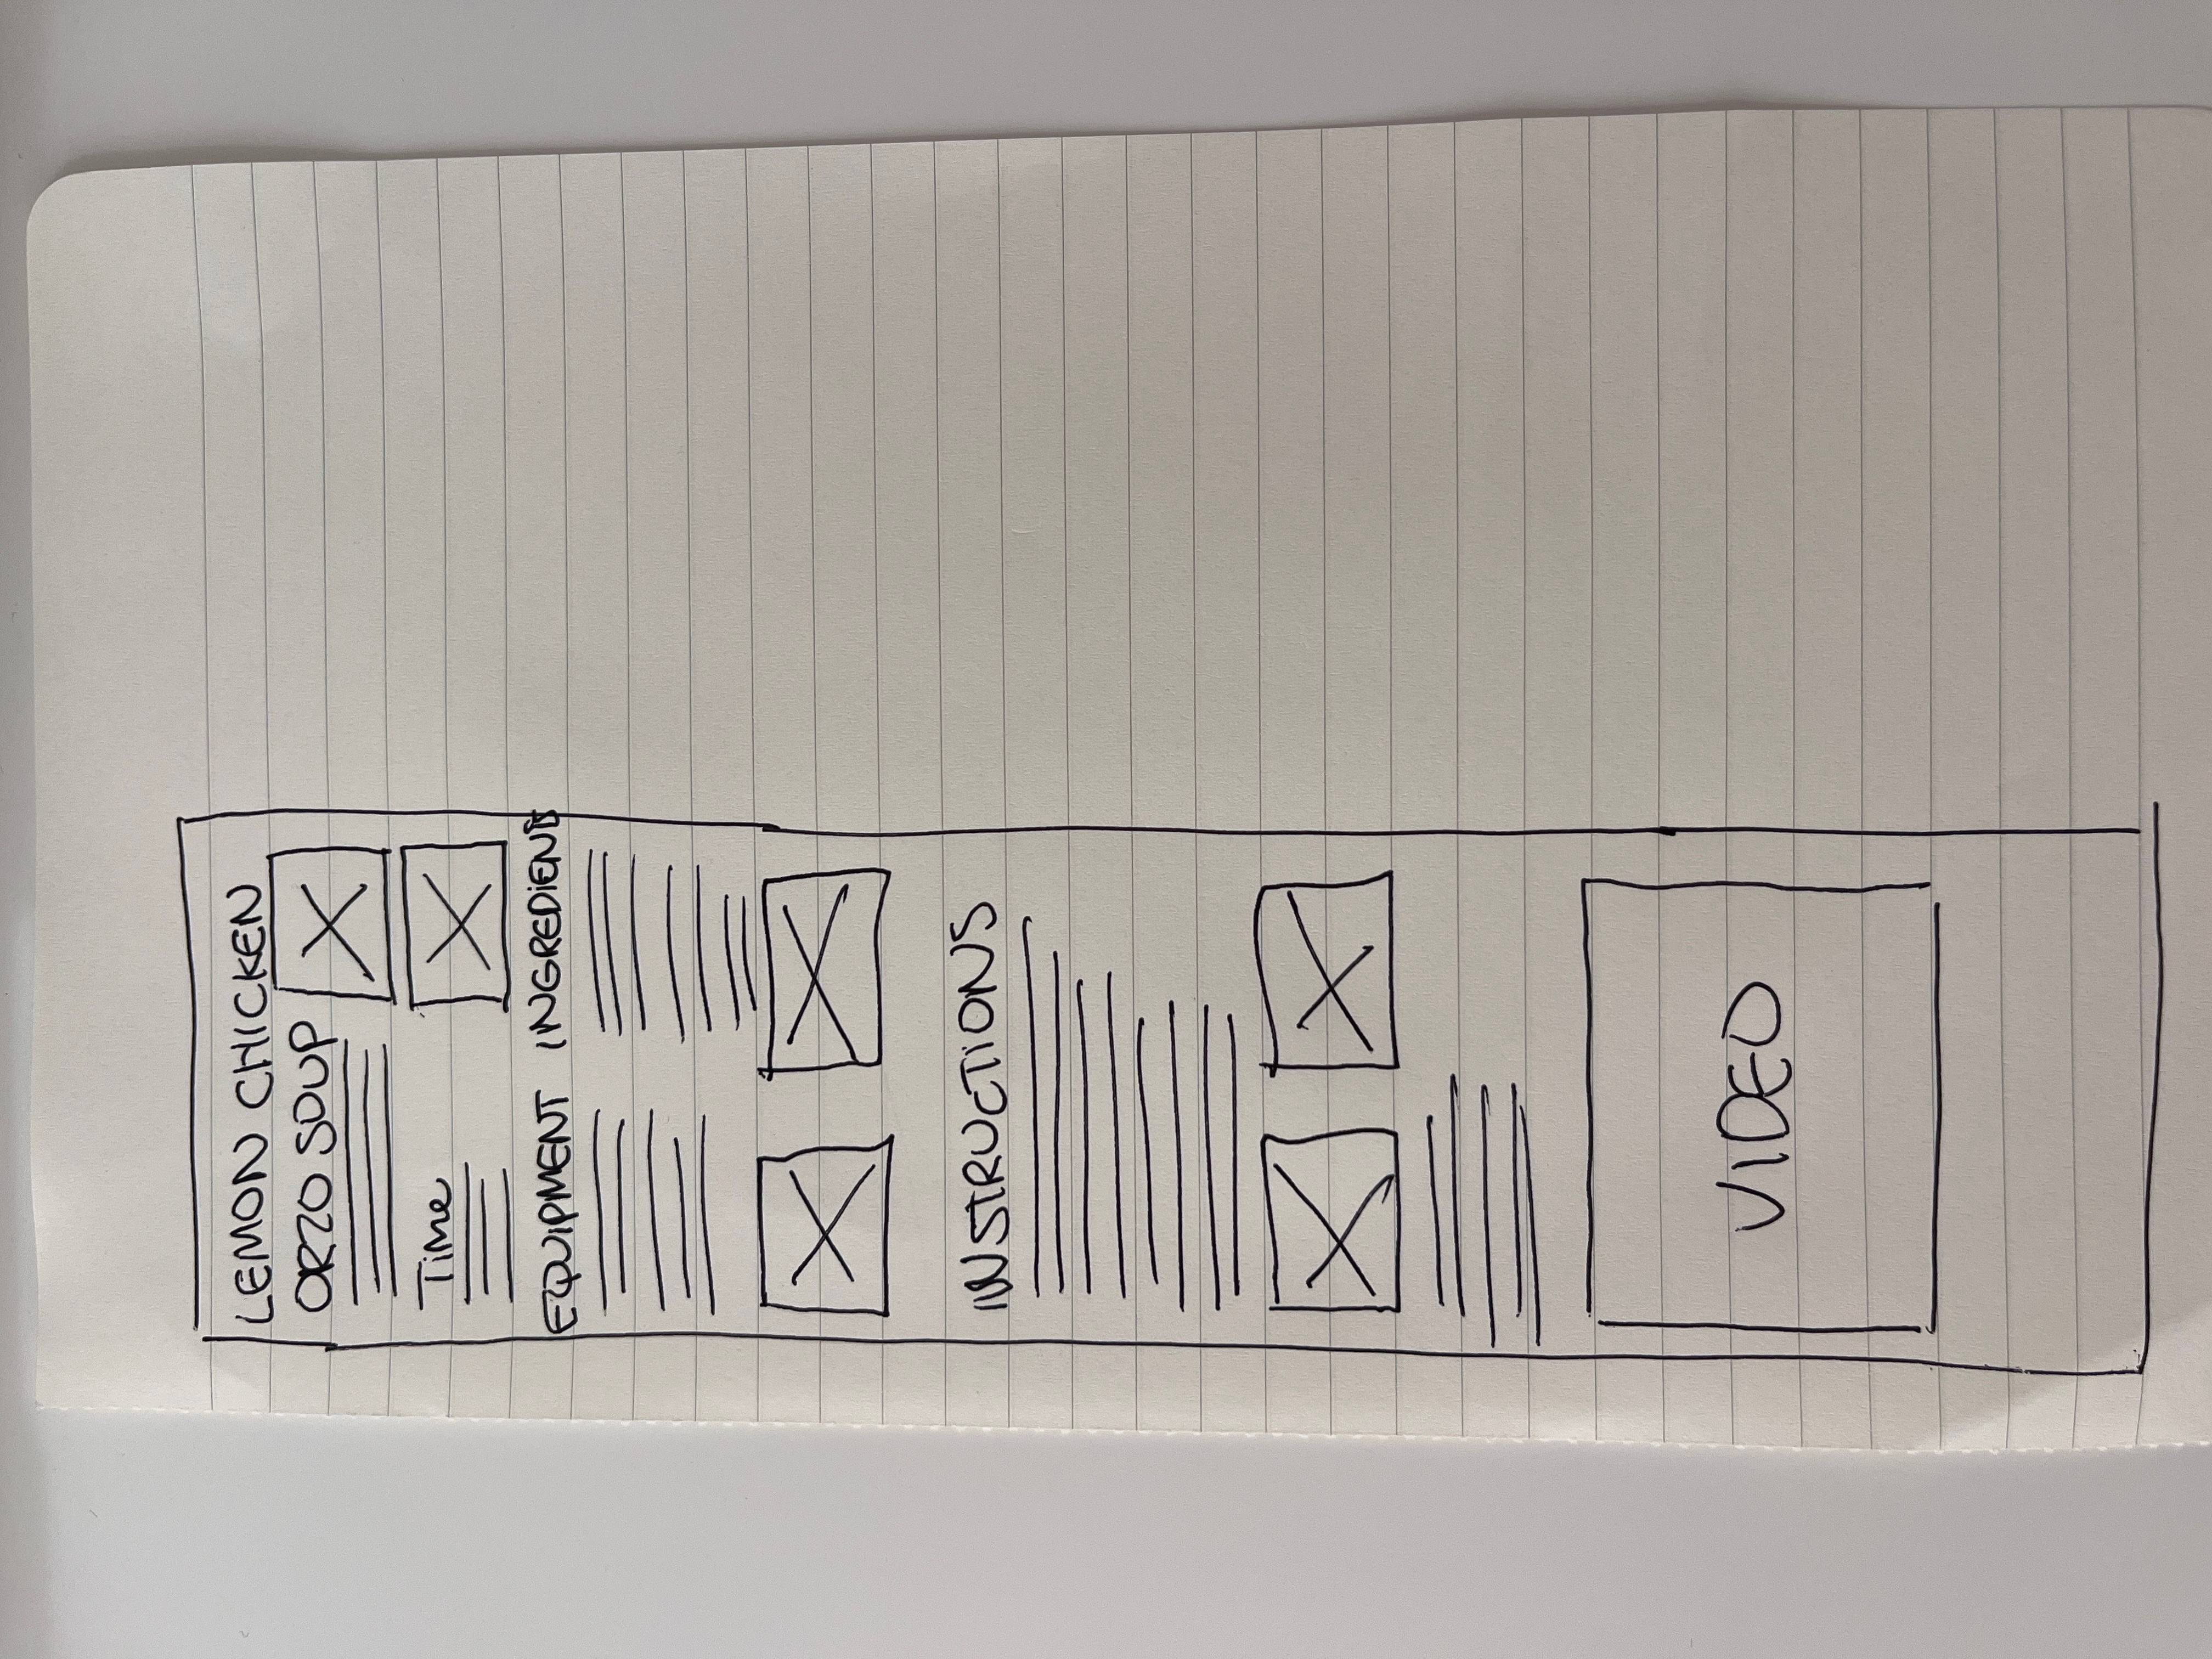 LEMON CHICKEN
ORZO SOUP
Time
EQUIPMENT INGREDIENTS
INSTRUCTIONS
VIDEO